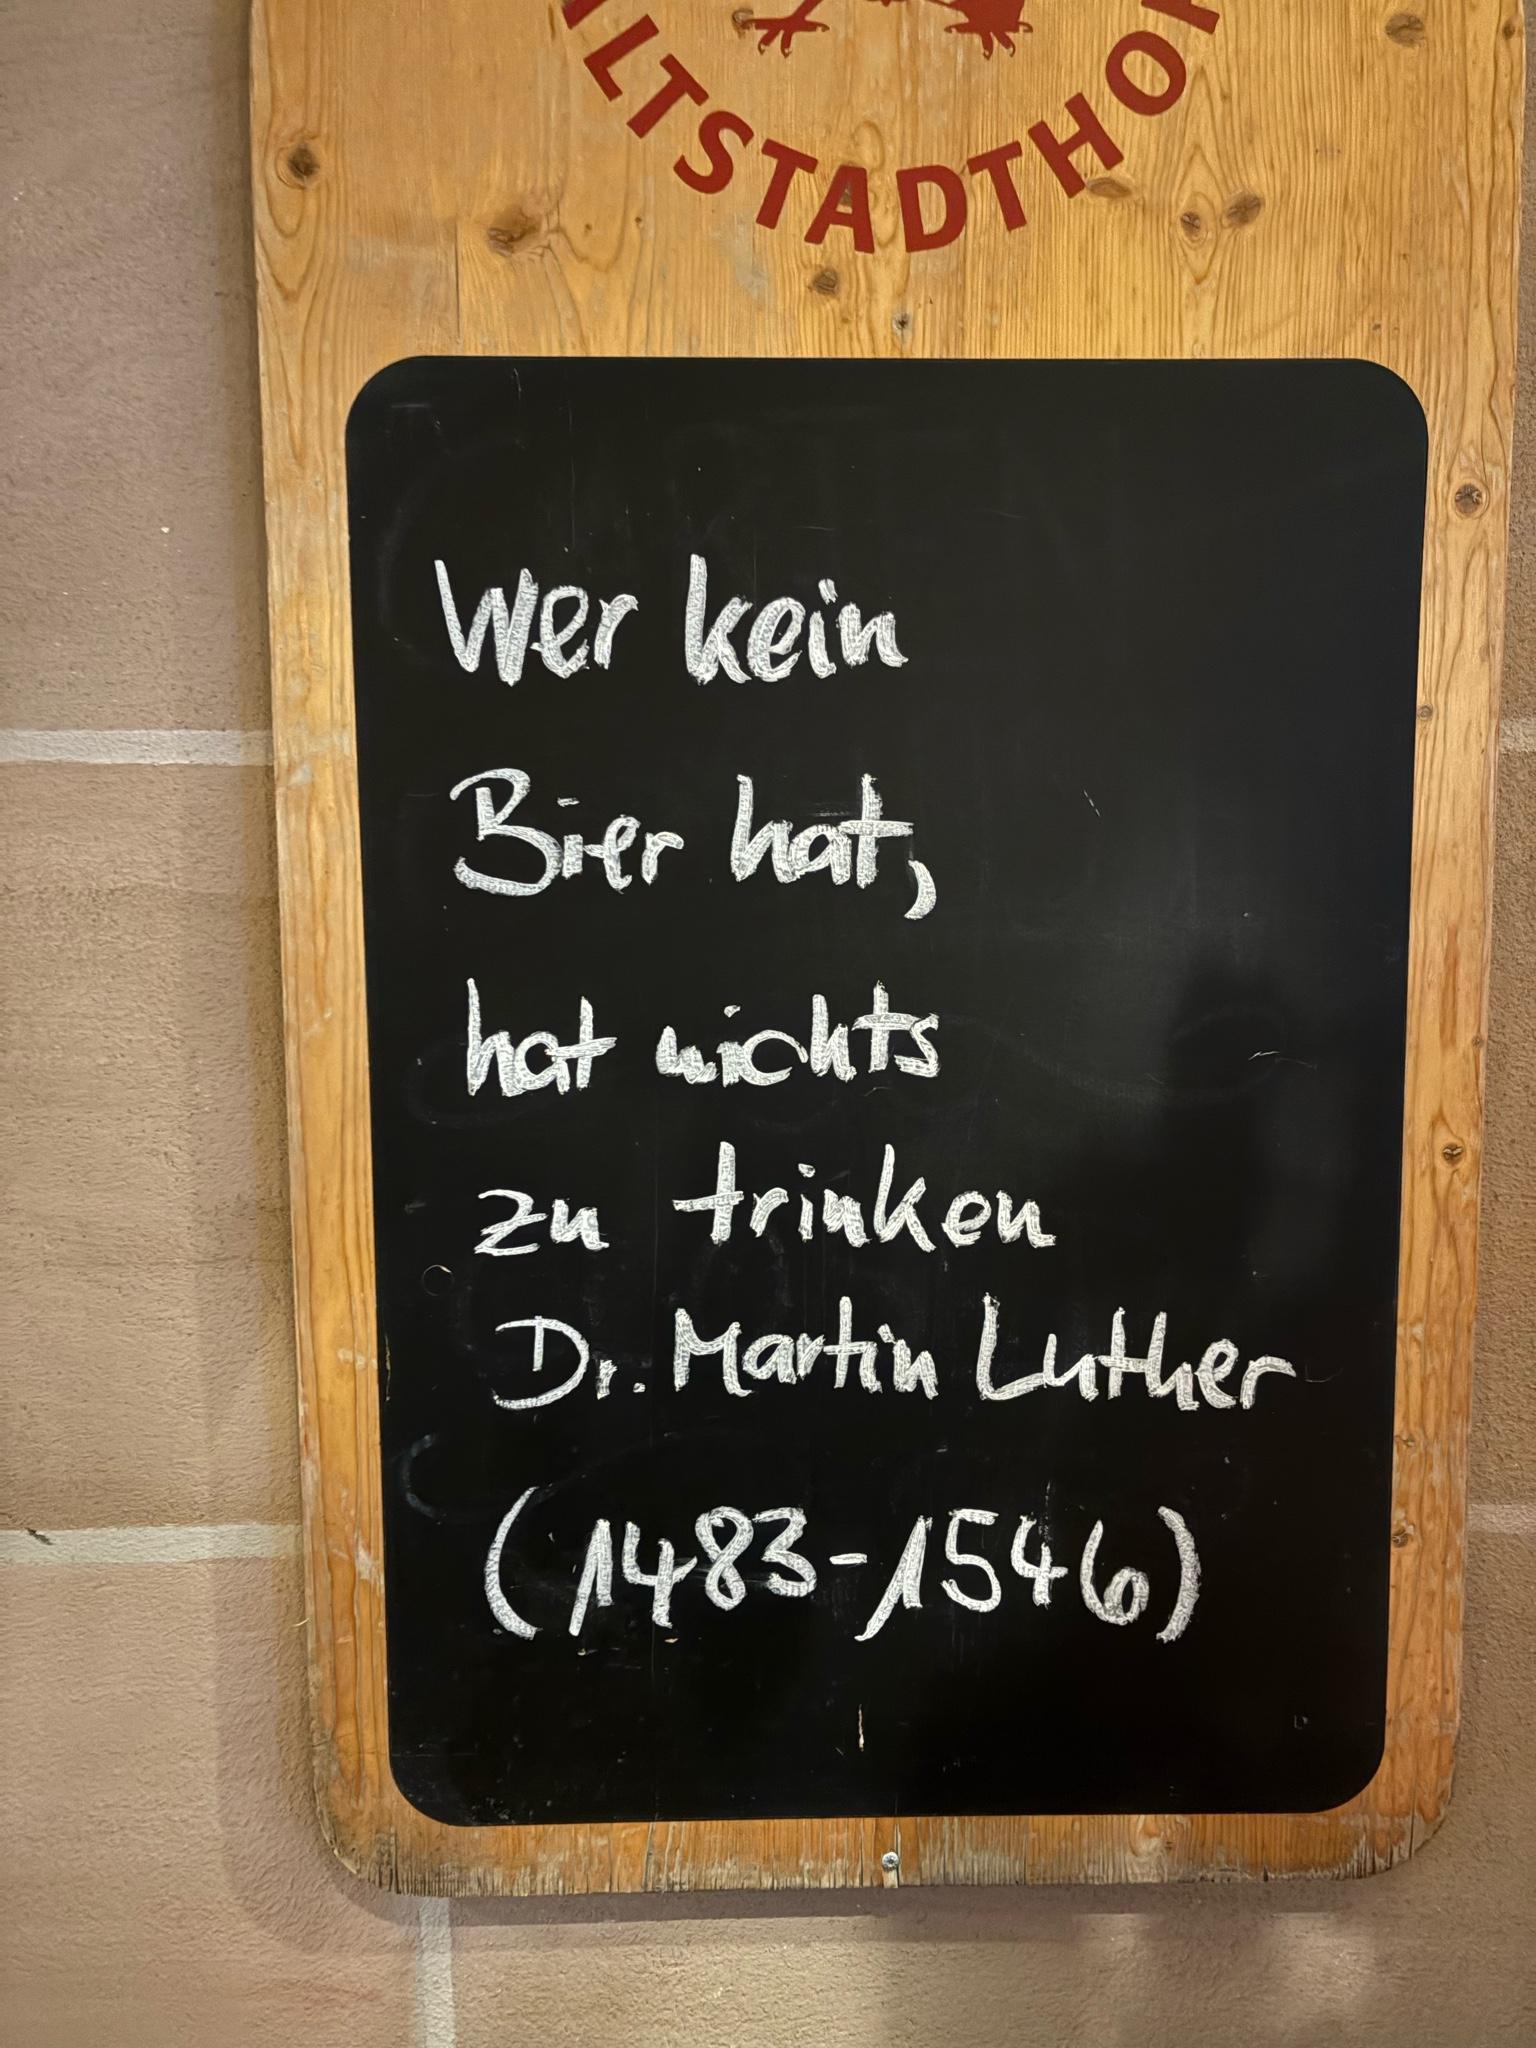 ALTSTADTHOF
Wer kein
Bier hat,
hat nichts
zu trinken
Dr. Martin Luther
(1483-1546)